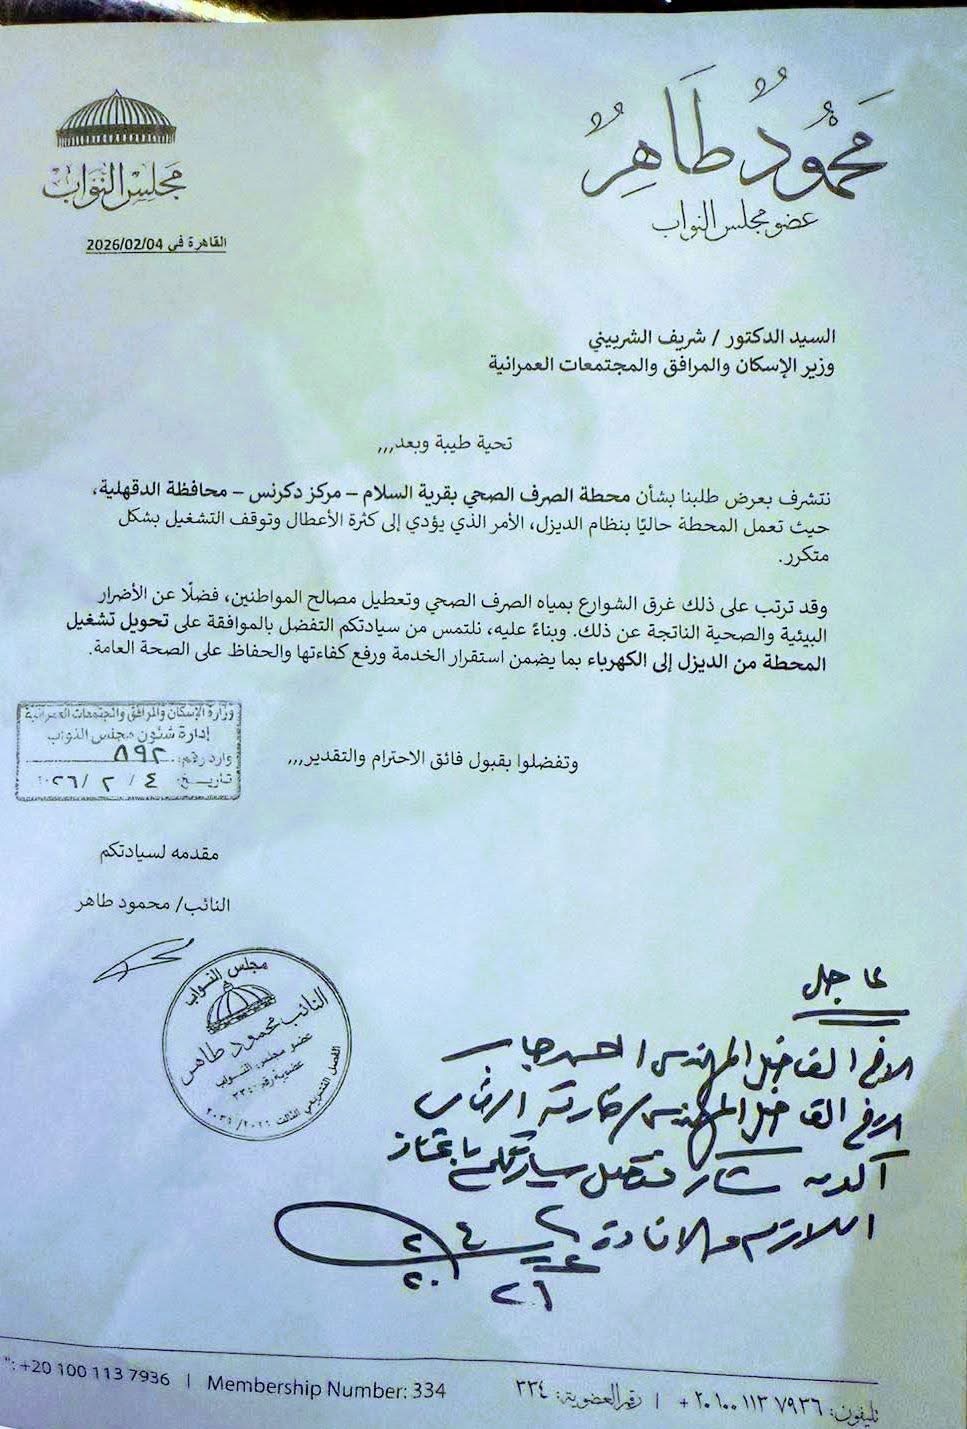 محمود طاهر
عضو مجلس النواب
مجلس النواب
القاهرة في 2026/02/04
السيد الدكتور / شريف الشربيني
وزير الإسكان والمرافق والمجتمعات العمرانية
تحية طيبة وبعد,,,
نتشرف بعرض طلبنا بشأن محطة الصرف الصحي بقرية السلام – مركز دكرنس – محافظة الدقهلية،
حيث تعمل المحطة حاليًا بنظام الديزل، الأمر الذي يؤدي إلى كثرة الأعطال وتوقف التشغيل بشكل
متكرر.
وقد ترتب على ذلك غرق الشوارع بمياه الصرف الصحي وتعطيل مصالح المواطنين، فضلًا عن الأضرار
البيئية والصحية الناتجة عن ذلك. وبناءً عليه، نلتمس من سيادتكم التفضل بالموافقة على تحويل تشغيل
المحطة من الديزل إلى الكهرباء بما يضمن استقرار الخدمة ورفع كفاءتها والحفاظ على الصحة العامة.
وزارة الإسكان والمرافق والمجتمعات العمرانية
إدارة شئون مجلس النواب
وارد رقم: ٥٩٢
تاريخ: ٤ / ٢ / ٢٠٢٦
وتفضلوا بقبول فائق الاحترام والتقدير,,,
مقدمه لسيادتكم
النائب/ محمود طاهر
مجلس النواب
النائب محمود طاهر
عضو مجلس النواب
عضوية رقم ٣٣٤
الفصل التشريعي الثالث
عاجل
الاخ الفاضل المهندس احمد
الاخ الفاضل المهندس/ طارق
سيادتكم باتخاذ
اللازم والافادة
٢٠٢٦
": +20 100 113 7936 | Membership Number: 334
تليفون: ٢٠١٠٠ ١١٣ ٧٩٣٦ + | رقم العضوية: ٣٣٤